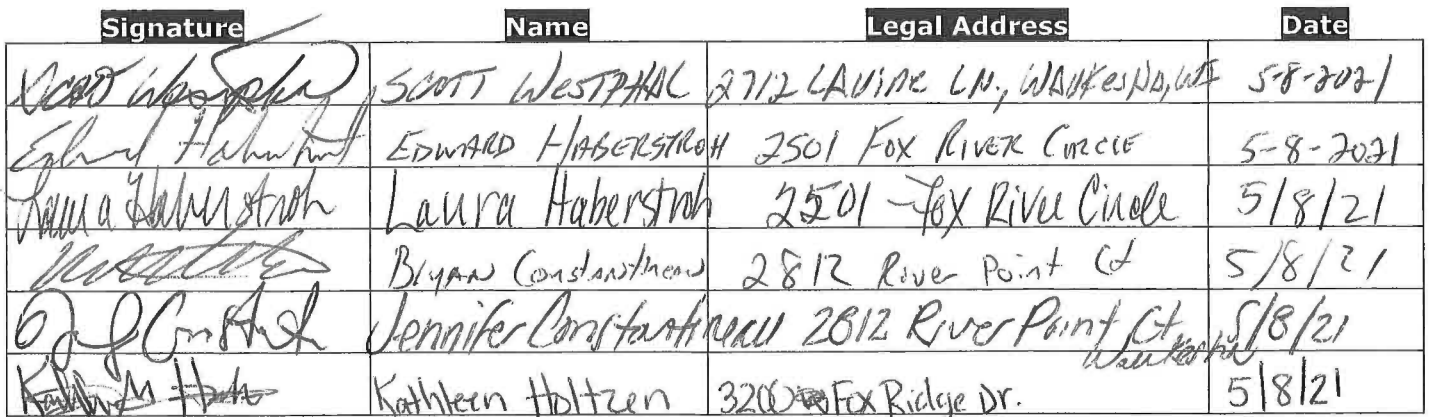 Signature Name Legal Address Date
Scott Westphal SCOTT WESTPHAL 2712 LAVINE LN., WAUKESHA, WI 5-8-2021
EDWARD HABERSTROH 2501 FOX RIVER CIRCLE 5-8-2021
Laura Haberstroh Laura Haberstroh 2501 Fox River Circle 5/8/21
BRYAN Constantineau 2812 River Point Ct 5/8/21
Jennifer Constantineau 2812 River Point Ct Waukesha 5/8/21
Kathleen Holtzen 3200 Fox Ridge Dr. 5/8/21